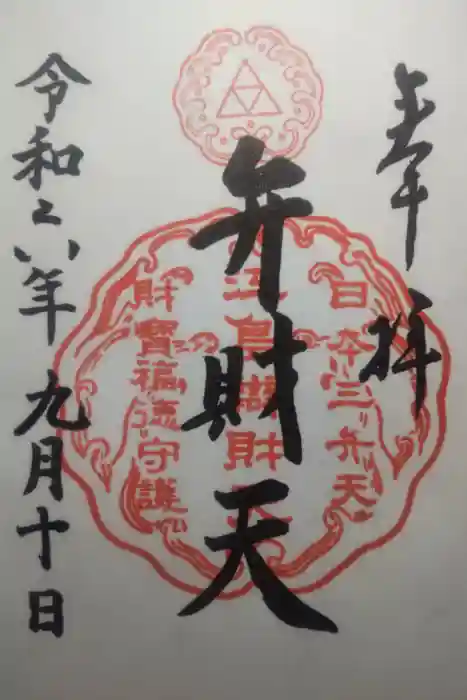 奉拝
日本三弁天
弁財天
江島辨財天
財寶福徳守護
令和六年九月十日